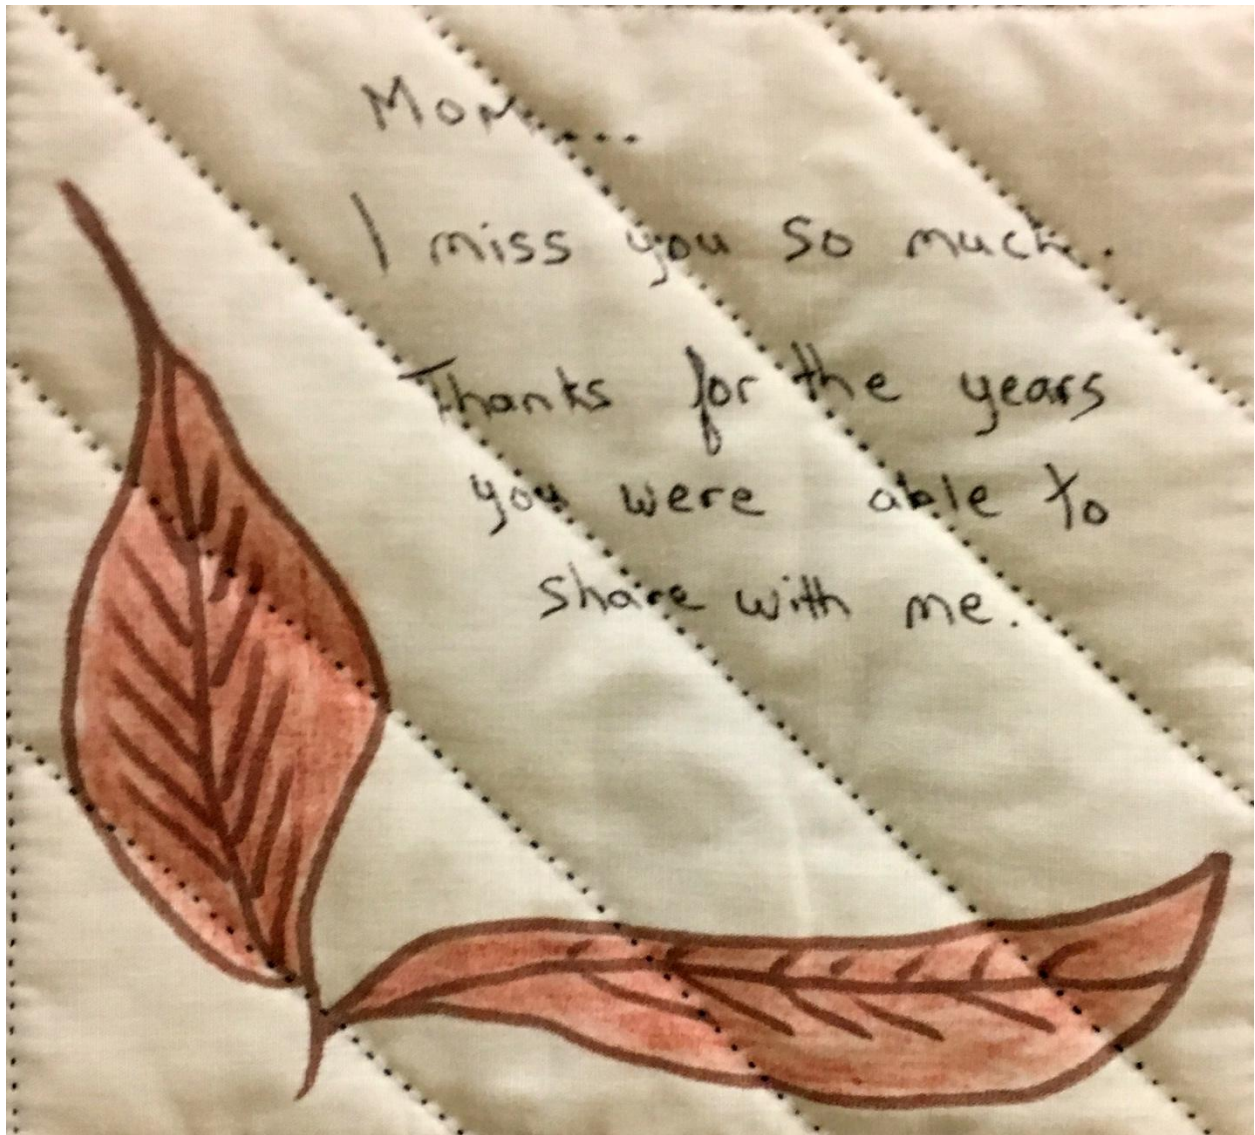 Mom...
I miss you so much.
Thanks for the years
you were able to
share with me.